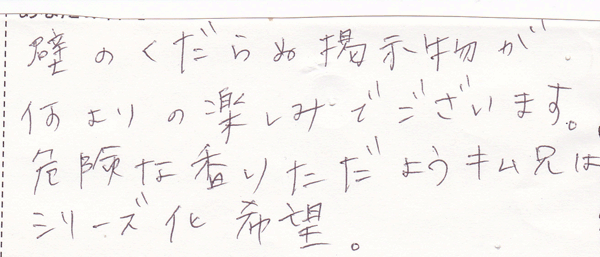 壁のくだらぬ掲示物が
何よりの楽しみでございます。
危険な香りただようキム兄は
シリーズ化希望。